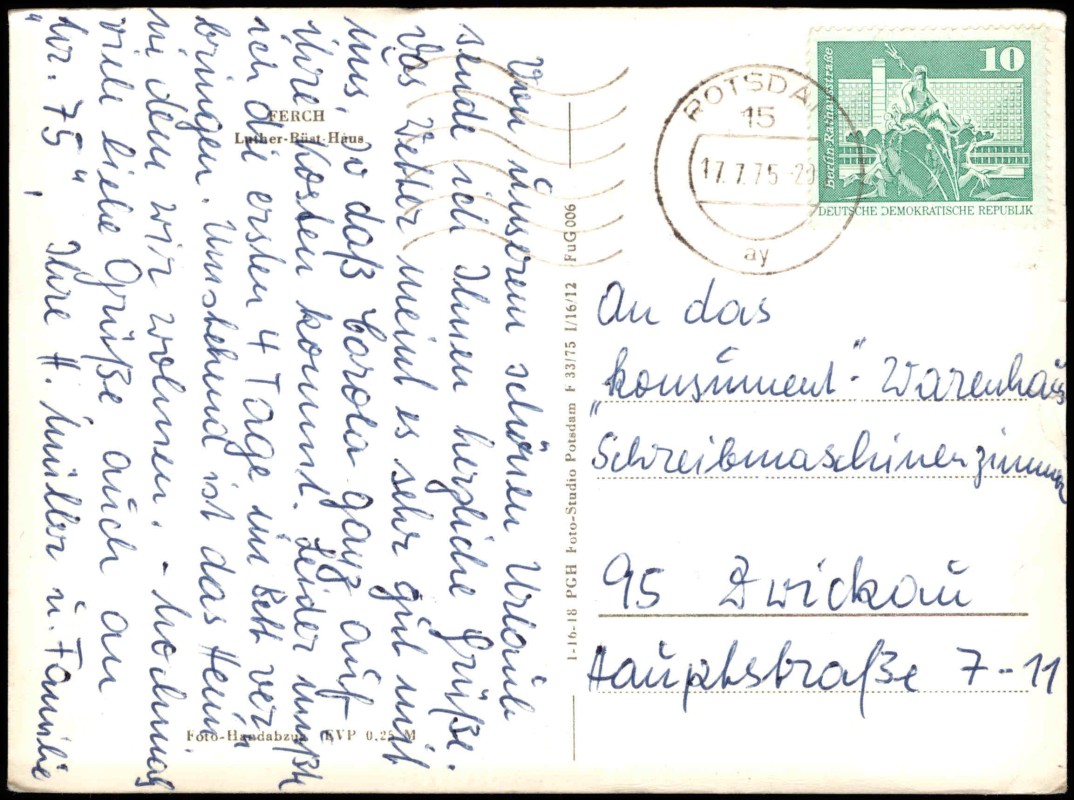 FERCH
Luther-Rüst-Haus
Von unserem schönen Urlaub
sende ich Ihnen herzliche Grüße.
Das Wetter meint es sehr gut mit
uns, so daß Carola ganz auf
Ihre Kosten kommt. Leider mußte
ich die ersten 4 Tage im Bett ver-
bringen. Umstehend ist das Heim,
in dem wir wohnen. - Nochmals
viele liebe Grüße auch an
„Nr. 75“, Ihre H. Müller u. Familie
Foto-Handabzug EVP 0,25 M
1-16-18 PGH Foto-Studio Potsdam F 33/75 I/16/12 FuG 006
POTSDAM
15
17.7.75-20
ay
10
Berlin, Rathausstraße
DEUTSCHE DEMOKRATISCHE REPUBLIK
An das
„konsument“- Warenhaus
Schreibmaschinenzimmer
95 Zwickau
Hauptstraße 7-11